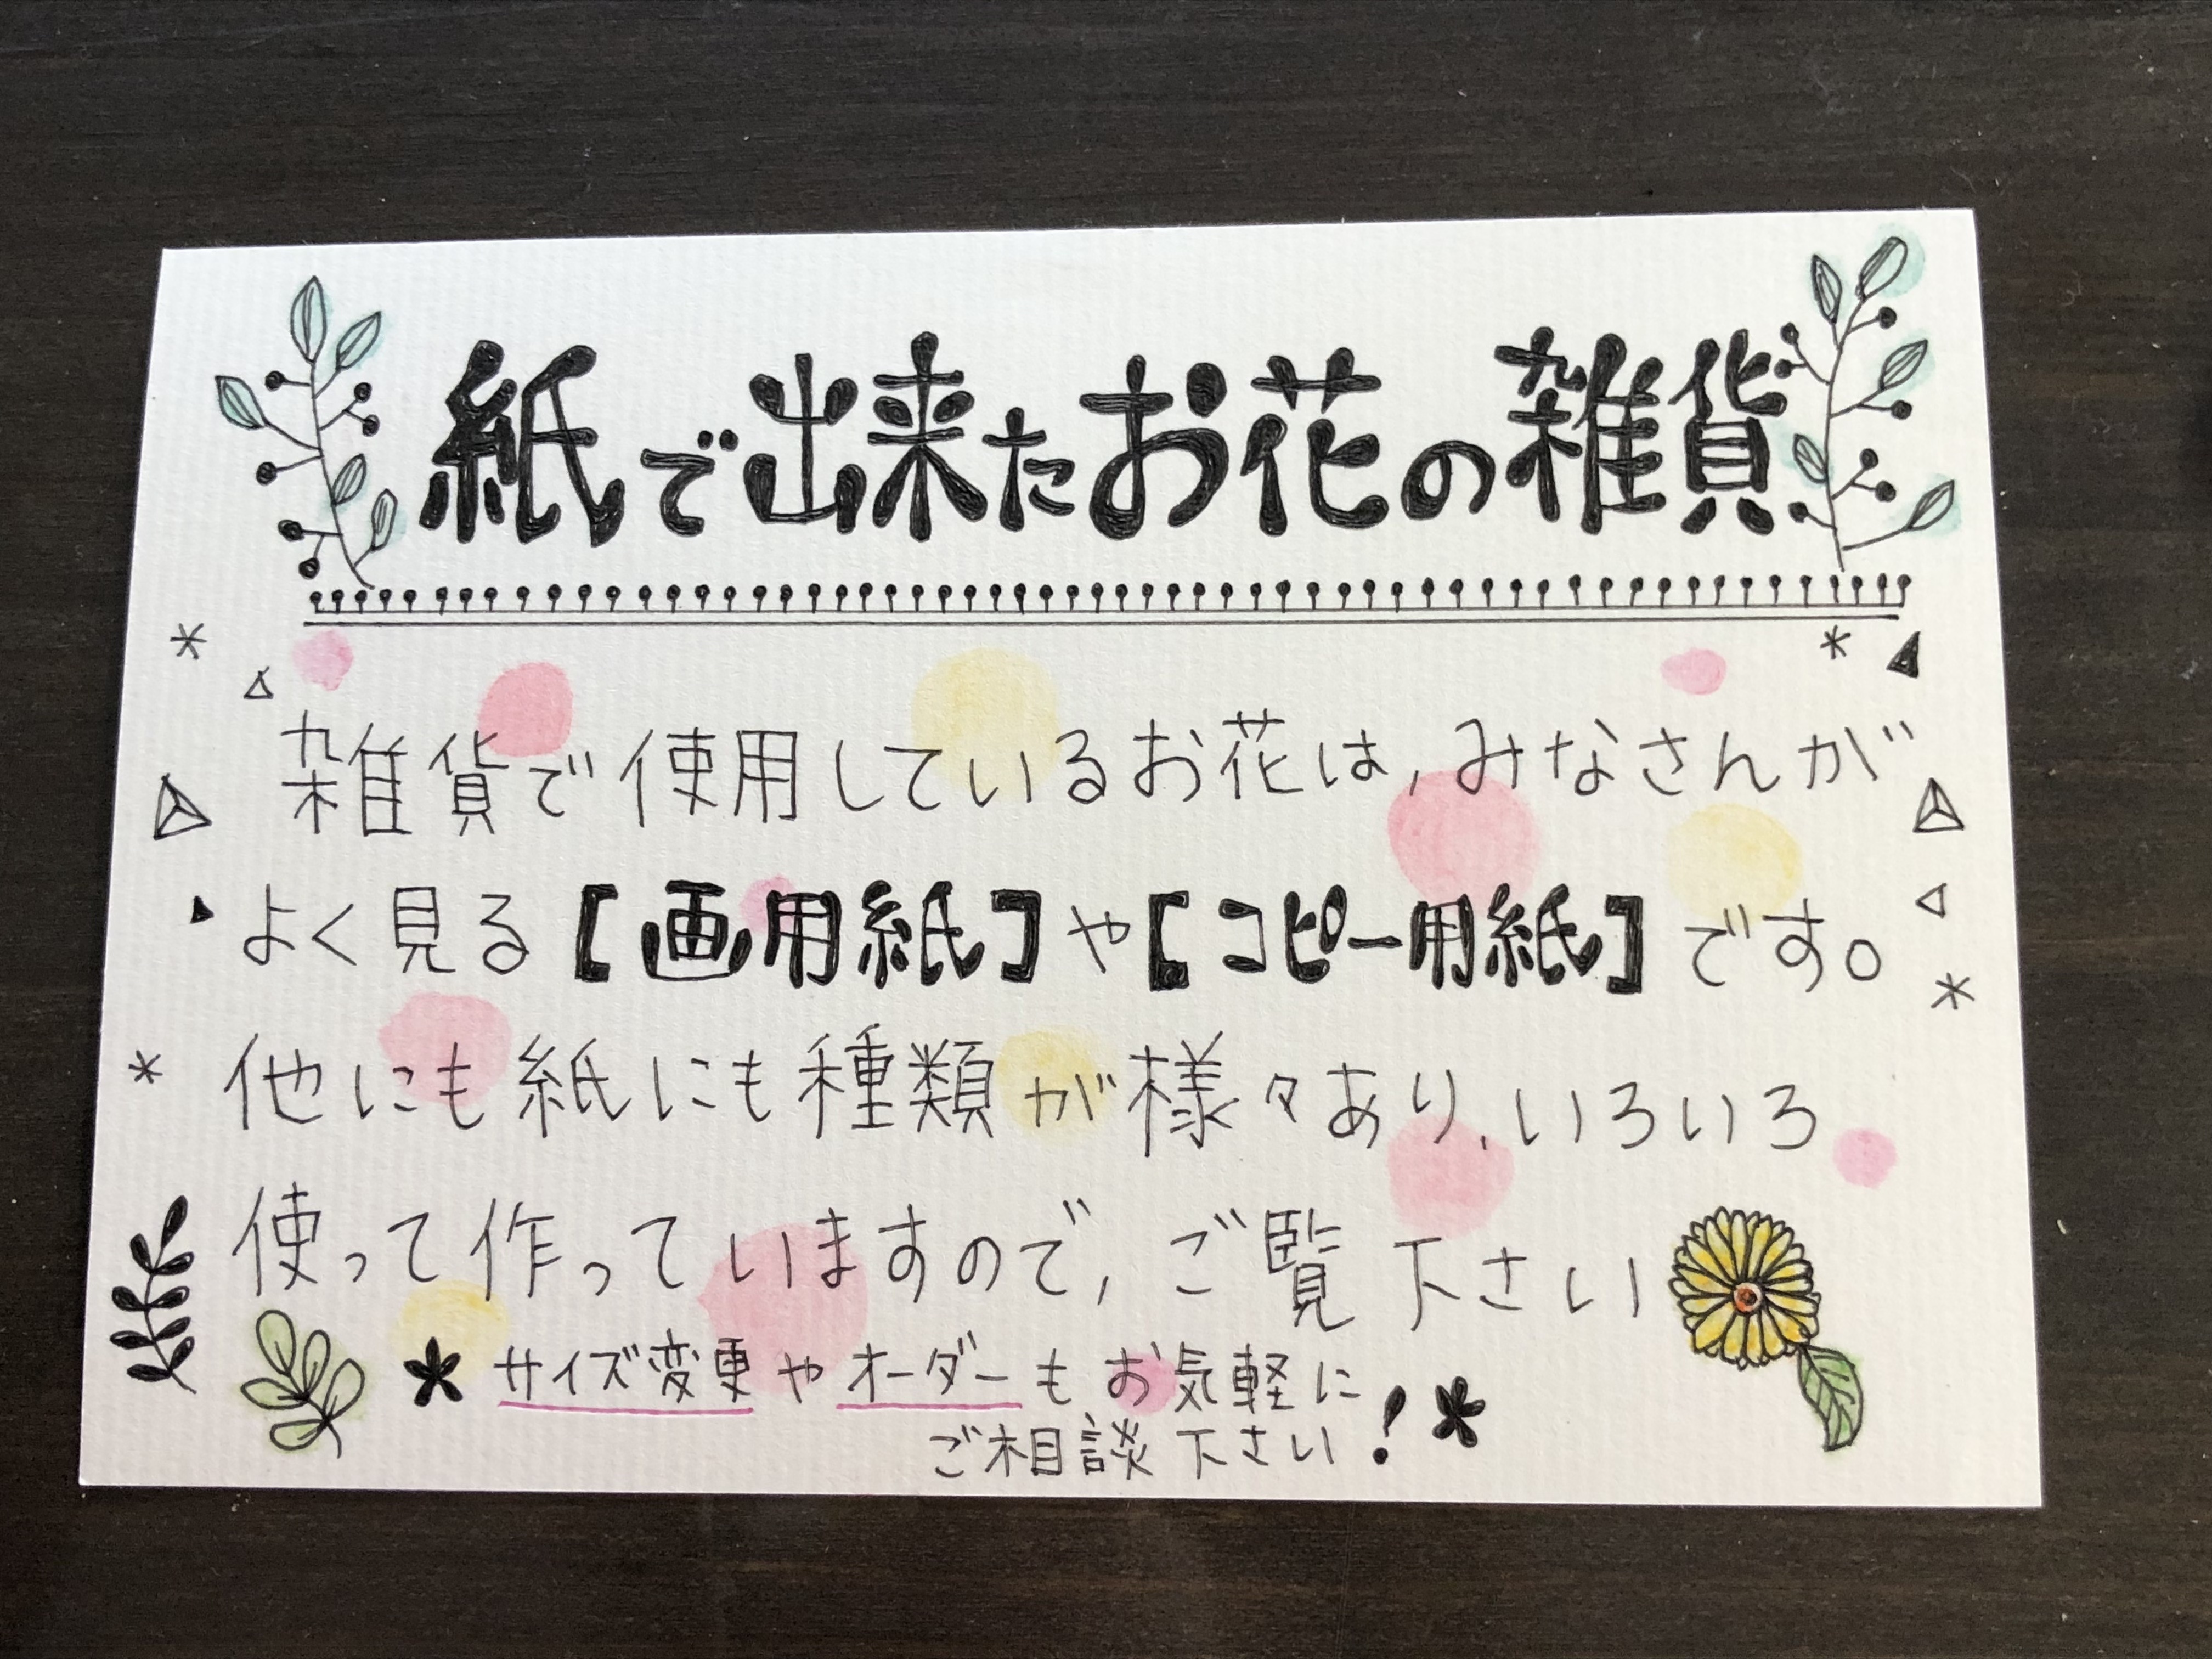 紙で出来たお花の雑貨
雑貨で使用しているお花は、みなさんが
よく見る【画用紙】や【コピー用紙】です。
他にも紙にも種類が様々あり、いろいろ
使って作っていますので、ご覧下さい
サイズ変更やオーダーもお気軽に
ご相談下さい!